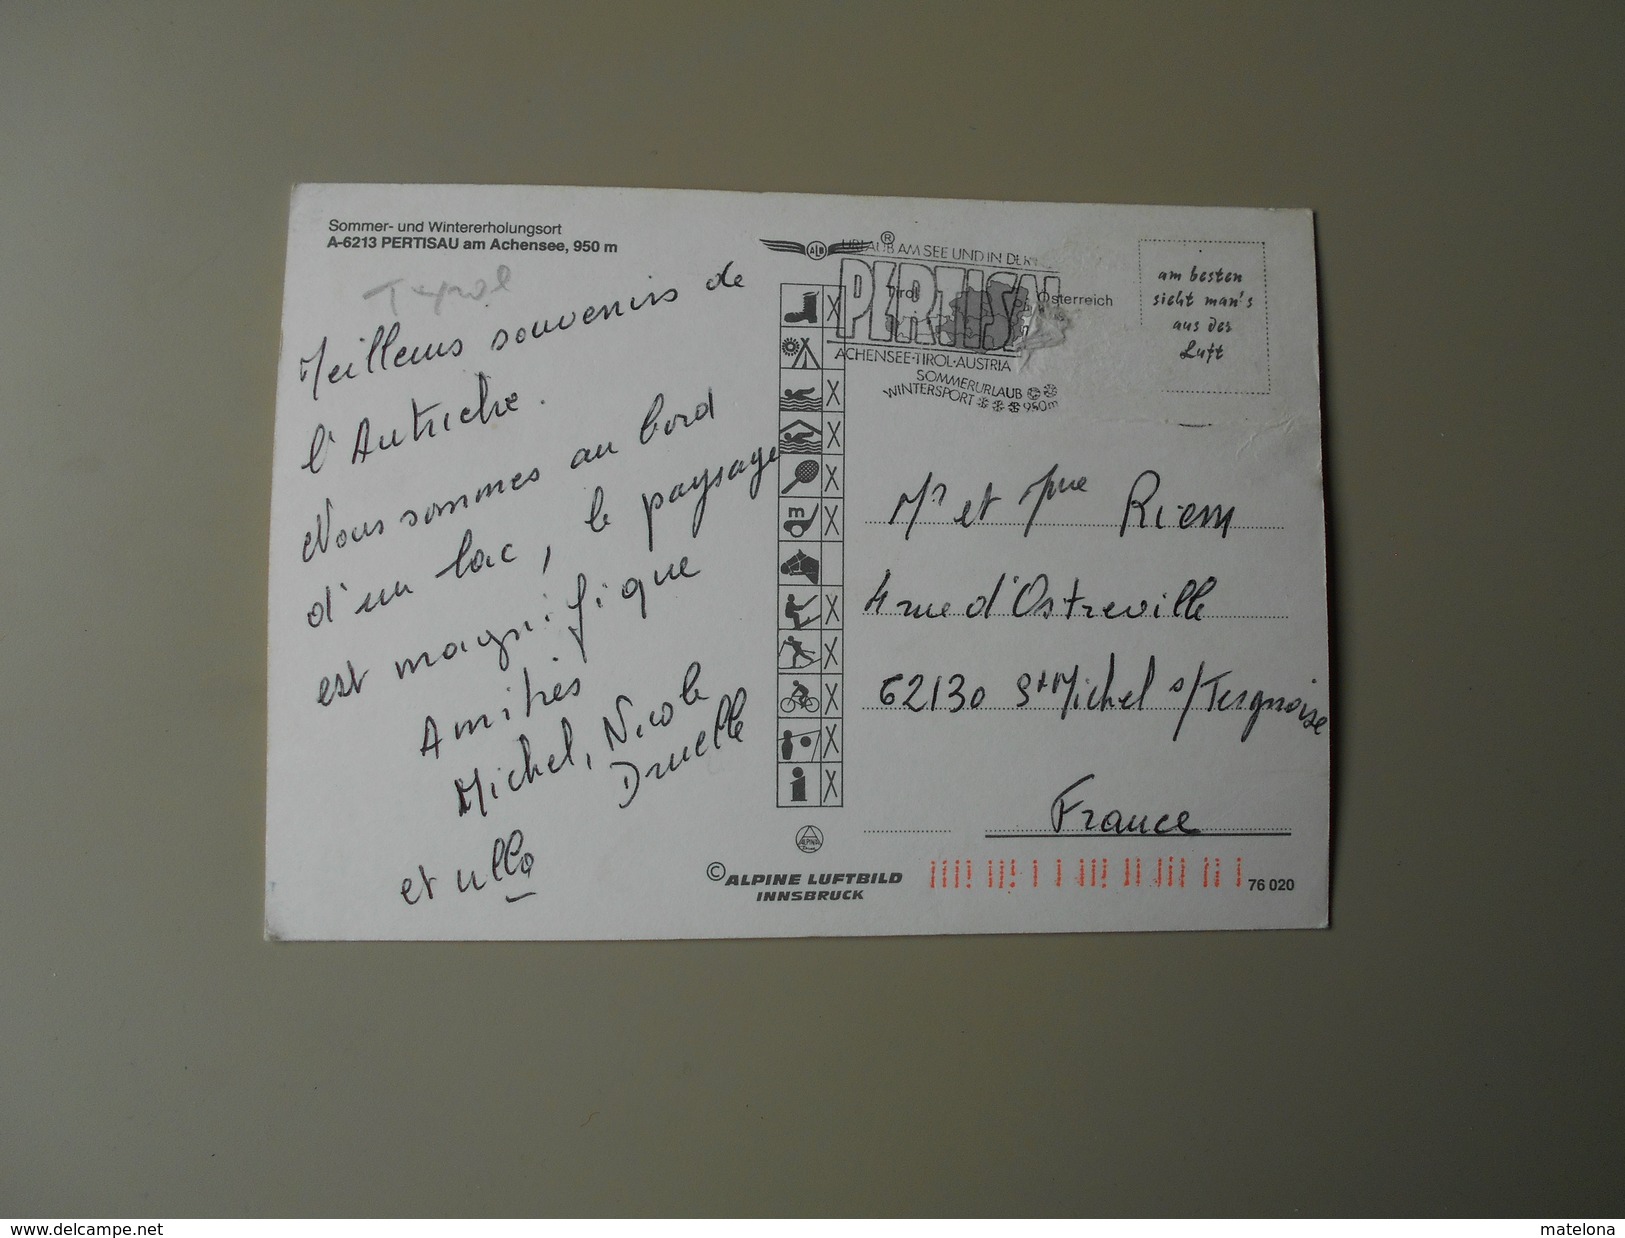 Sommer- und Wintererholungsort
A-6213 PERTISAU am Achensee, 950 m
Tyrol
Meilleurs souvenirs de
l'Autriche.
Nous sommes au bord
d'un lac, le paysage
est magnifique
Amitiés
Michel, Nicole
Druelle
et ulla
ALB
®
URLAUB AM SEE UND IN DEN
PERTISAU
Tirol
Österreich
ACHENSEE·TIROL·AUSTRIA
SOMMERURLAUB
WINTERSPORT 950m
am besten
sieht man's
aus der
Luft
m
i
Mr et Mme Riem
4 rue d'Ostreville
62130 St Michel s/Tergnoise
France
ALPINE
© ALPINE LUFTBILD
INNSBRUCK
76 020
www.delcampe.net
matelona